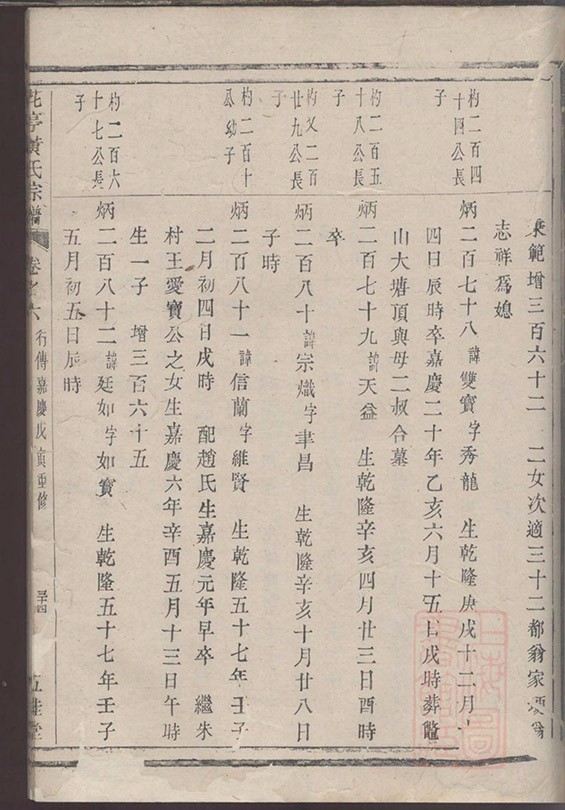 秉範增三百六十二　二女次適三十二都翁家
志祥爲媳
杓二百四
十四公長
子
炳二百七十八諱雙寶字秀龍　生乾隆庚戌十二月十
四日辰時卒嘉慶二十年乙亥六月十五日戌時葬
山大塘頂與母二叔合墓
杓二百五
十八公長
子
炳二百七十九諱天益　生乾隆辛亥四月廿三日酉時
卒
杓又二百
廿九公長
子
炳二百八十諱宗熾字聿昌　生乾隆辛亥十月廿八日
子時
杓二百十
公幼子
炳二百八十一諱信蘭字維賢　生乾隆五十七年壬子
二月初四日戌時　配趙氏生嘉慶元年早卒　繼朱
村王愛寶公之女生嘉慶六年辛酉五月十三日午時
生一子　增三百六十五
杓二百六
十七公長
子
炳二百八十二諱廷如字如寶　生乾隆五十七年壬子
五月初五日辰時
花亭黃氏宗譜　卷之六　行傳嘉慶戊寅重修　三十四　五桂堂